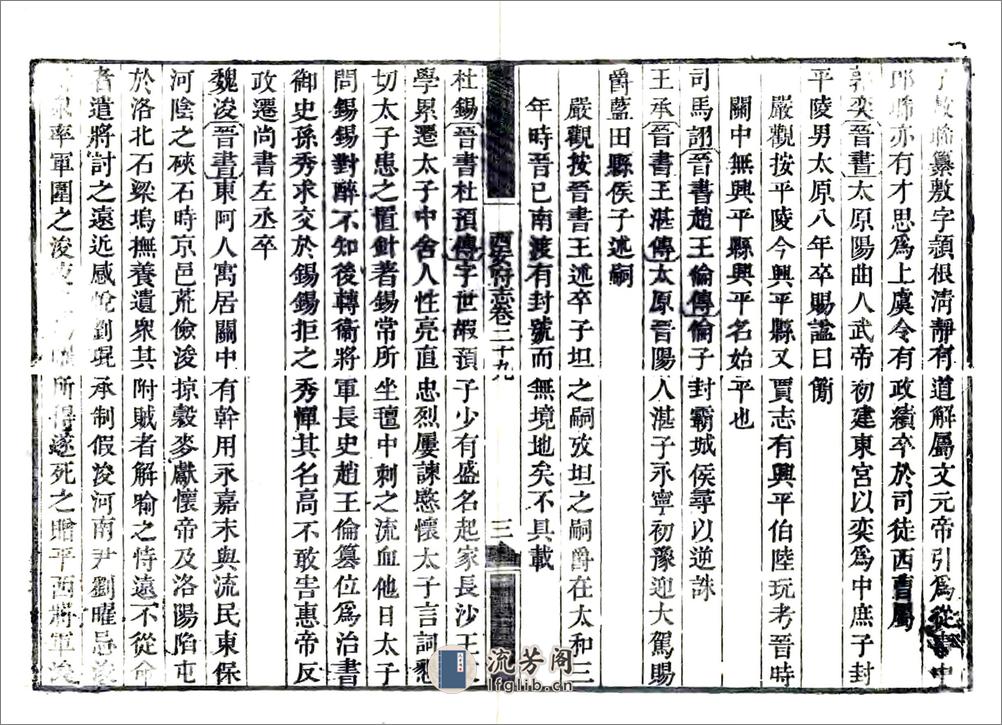 敷聯纂敷字穎根清靜有道解屬文元帝引爲從事中
郎聯亦有才思爲上虞令有政績卒於司徒西曹屬
郭奕晉書太原陽曲人武帝初建東宮以奕爲中庶子封
平陵男太康八年卒賜諡曰簡
嚴觀按平陵今興平縣又賈志有興平伯陸玩考晉時
關中無興平縣興平名始平也
司馬詡晉書趙王倫傳倫子封霸城侯尋以逆誅
王承晉書王湛傳太原晉陽人湛子永寧初豫迎大駕賜
爵藍田縣侯子述嗣
嚴觀按晉書王述卒子坦之嗣攷坦之嗣爵在太和三
年時晉已南渡有封號而無境地矣不具載
西安府志卷二十九
三
杜錫晉書杜預傳字世嘏預子少有盛名起家長沙王
學累遷太子中舍人性亮直忠烈屢諫愍懷太子言詞懇
切太子患之置針著錫常所坐氊中刺之流血他日太子
問錫錫對醉不知後轉衞將軍長史趙王倫篡位爲治書
御史孫秀求交於錫錫拒之秀憚其名高不敢害惠帝反
政遷尚書左丞卒
魏浚晉書東阿人寓居關中有幹用永嘉末與流民東保
河陰之硤石時京邑荒儉浚掠穀麥獻懷帝及洛陽陷屯
於洛北石梁塢撫養遺衆其附賊者解喻之恃遠不從命
者遣將討之遠近感悅劉琨承制假浚河南尹劉曜忌浚
率軍圍之浚所得遂死之贈平西將軍浚
流芳阁
lfglib.cn